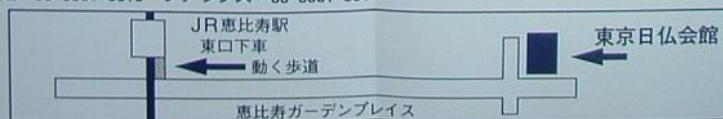 JR恵比寿駅
東口下車
動く歩道
東京日仏会館
恵比寿ガーデンプレイス